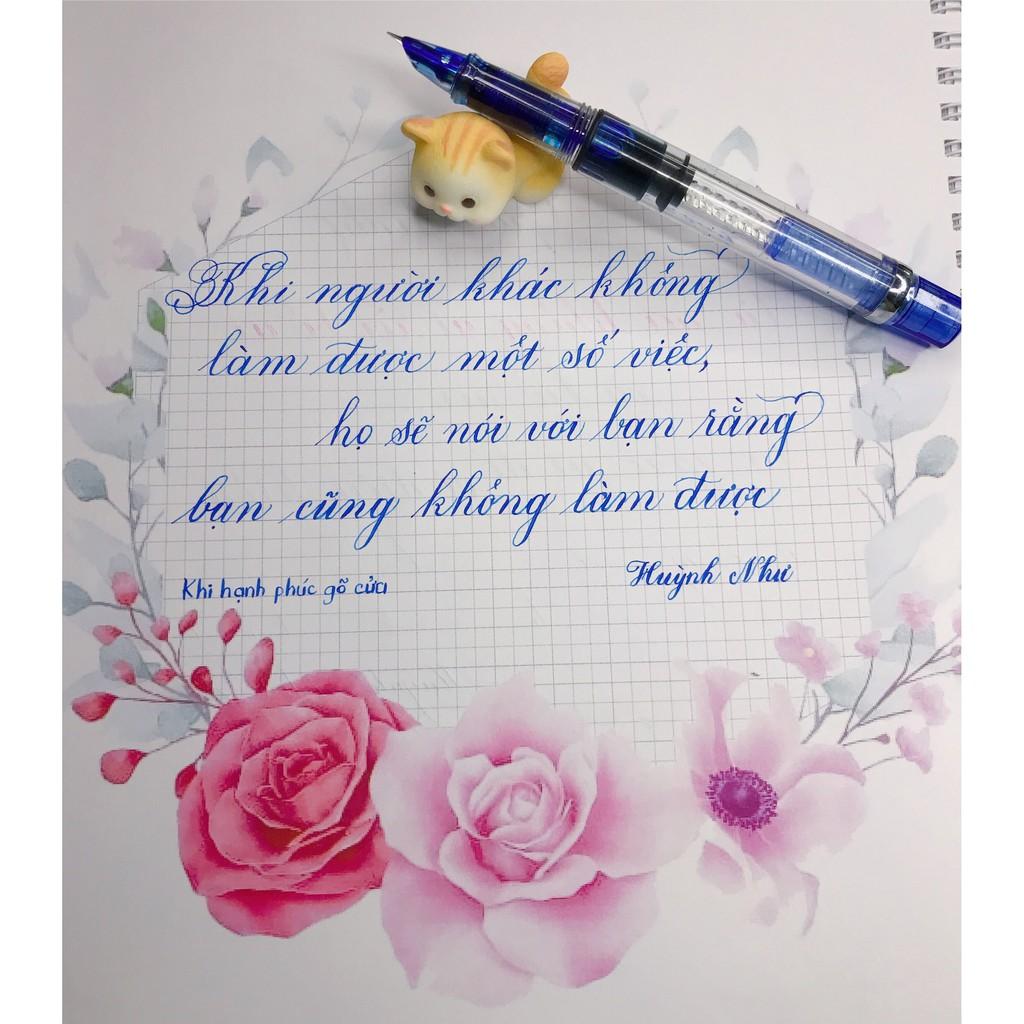 Khi người khác không
làm được một số việc,
họ sẽ nói với bạn rằng
bạn cũng không làm được
Khi hạnh phúc gõ cửa
Huỳnh Như